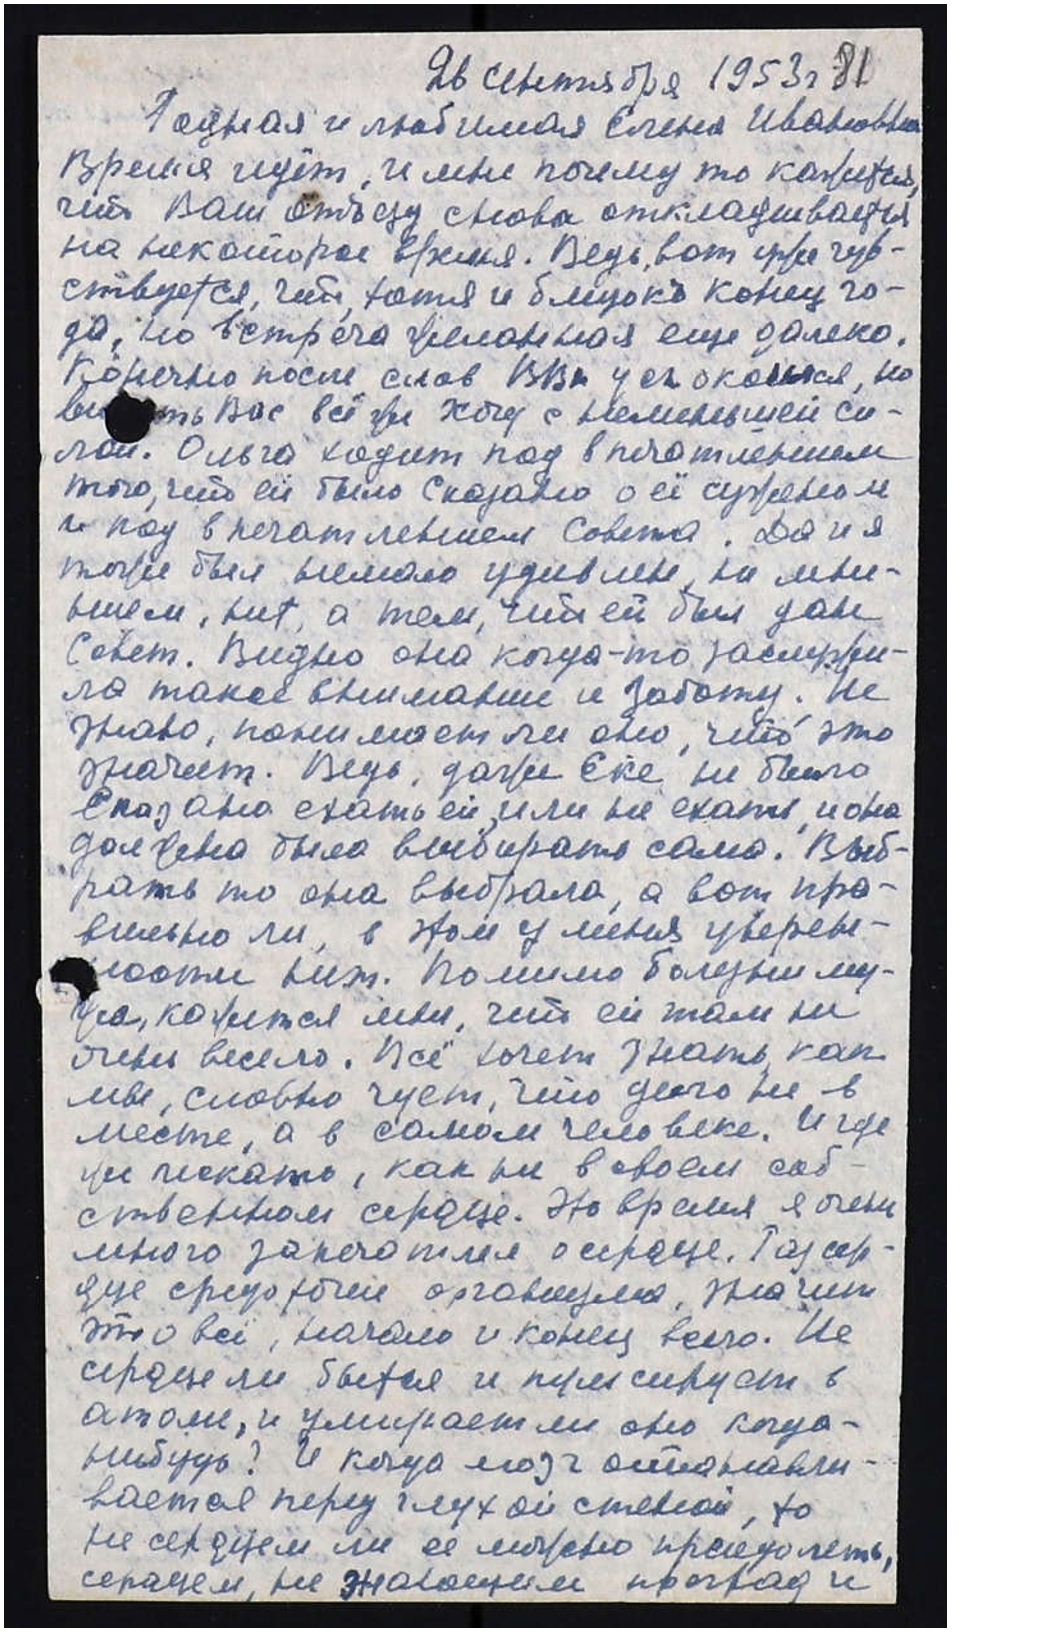 26 сентября 1953г 81
Родная и любимая Елена Ивановна
Время идёт, и мне почему то кажется,
что Ваш отъезд снова откладывается
на некоторое время. Ведь, вот уже чув-
ствуется, что, хотя и близок конец го-
да, но встреча желанная еще далеко.
Конечно после слов ВВл успокоился, но
ви ть Вас всё же хочу с неменьшей си-
лой. Ольга ходит под впечатлением
того, что ей было сказано о её суженом
и под впечатлением Совета. Да и я
тоже был немало удивлен, не мне-
нием, нет, а тем, что ей был дан
Совет. Видно она когда-то заслужи-
ла такое внимание и заботу. Не
знаю, понимает ли она, что это
значит. Ведь, даже Еке не было
сказано ехать ей, или не ехать, и она
должна была выбирать сама. Выб-
рать то она выбрала, а вот пра-
вильно ли, в этом у меня уверен-
ности нет. Помимо болезни му-
жа, кажется мне, что ей там не
очень весело. Всё хочет знать, как
мы, словно чует, что дело не в
месте, а в самом человеке. И где
же искать, как не в своем соб-
ственном сердце. Это время я очень
много запечатлел о сердце. Раз сер-
дце средоточие организма, значит
это всё, начало и конец всего. Не
сердце ли бьется и пульсирует в
атоме, и умирает ли оно когда-
нибудь? И когда мозг останавли-
вается перед глухой стеной, то
не сердцем ли ее можно преодолеть,
сердцем, не знающим преград и